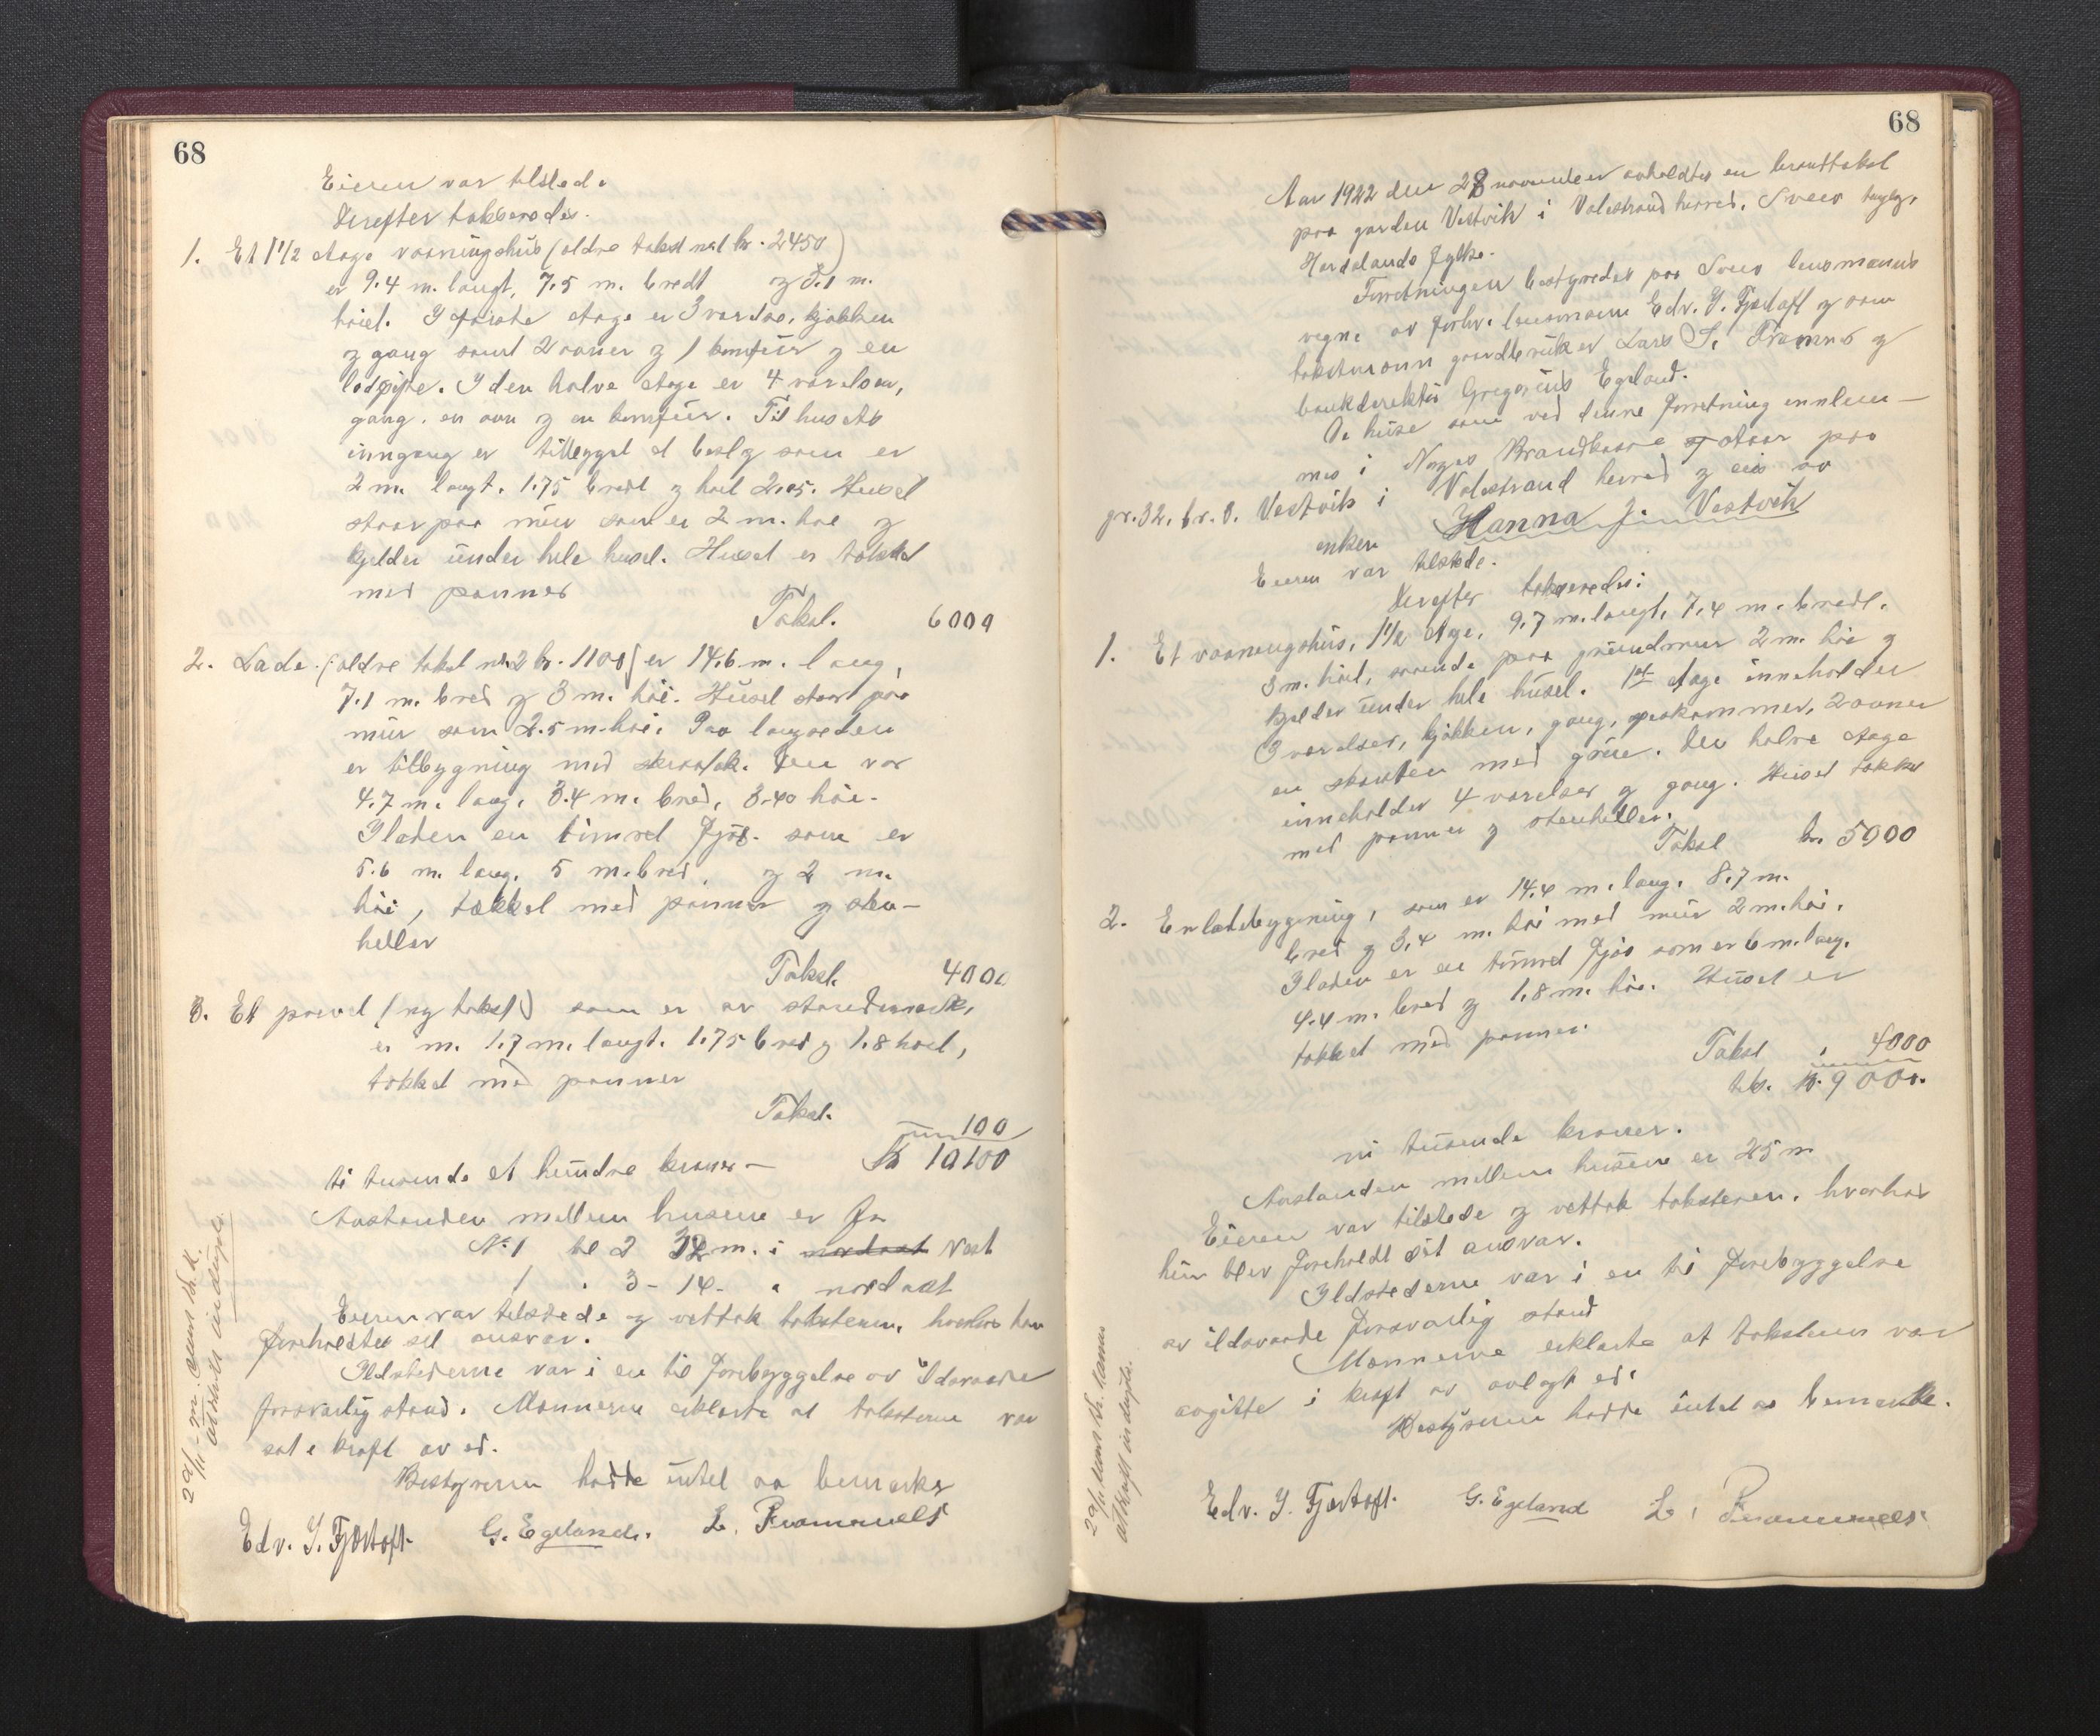 68
Eieren var tilstede
Derefter takseredes.
1. Et 1 1/2 etage vaaningshus (eldre takst nr 1 kr. 2450)
er 9.4 m. langt, 7.5 m. bredt og 5.1 m.
høiet. I første etage er 3 værelser, kjøkken
og gang samt 2 ovner og 1 komfür og en
. I den halve etage er 4 værelser,
gang, en ovn og en komfür. Til husets
inngang er tilbygget et beslag som er
2 m. langt. 1.75 bredt og høit 2.05. Huset
staar paa mür som er 2 m. høi og
kjelder ünder hele huset. Huset er tækket
med panner
Takst. 6000
2. Lade. (eldre takst nr. 2 kr. 1100) er 14.6 m. lang,
7.1 m. bred og 3 m. høi. Hüset staar paa
mür som 2.5 m. høi. Paa langsiden
er tilbygning med skraatak. Den var
4.7 m. lang, 3.4 m. bred, 3.40 høi.
I laden en timret fjøs som er
5.6 m. lang, 5 m. bred, og 2 m.
høi, tækket med panner og sten-
heller
Takst. 4000
3. Et (ny takst) som er av standermærk,
er m. 1.7 m. langt. 1.75 bred og 1.8 høit,
tækket med panner
Takst. 100
ti tusende et hündre kroner — Kr 10100
Avstanden mellem husene er fra
No 1 til 2 32 m. i nordvest Vest
1 " 3 - 14 - " nordvest
Eieren var tilstede og vedtok taksterne, hvorhos han
foreholdtes sit ansvar.
Ildstederne var i en til forebyggelse av ildsvaade
forsvarlig stand. Mænnerne erklærte at taksterne var
sat i kraft av ed.
Bestyreren hadde intet aa bemerke
Edv. I. Fjærtoft. G. Egeland. L. Frammeels
68
Aar 1922 den 28 november avholdtes en brandtakst
paa garden Vestvik i Valestrand herred, Sveio tinglag,
Hordalands fylke.
Forretningen bestyredes paa Sveio lensmanns
vegne av forhv. lensmann Edv. I. Fjærtoft og som
takstmenn gaardbrüker Lars I. Framnes og
bankdirektør Gregoriüs Egeland.
De hüse som ved denne forretning innlem-
mes i Norges Brandkasse staar paa
gr. 32. br. 8. Vestvik i Valestrand herred og eies av
enken Hanna J. Vestvik
Eieren var tilstede.
Derefter takseredes:
1. Et vaaningshüs, 1 1/2 etage, 9.7 m. langt, 7.4 m. bredt,
3 m. høit, staaende paa gründmur 2 m. høi og
kjelder ünder hele hüset. 1ste etage inneholder
3 værelser, kjøkken, gang, spiskammer, 2 ovner
en skorsten med grüe. Den halve etage
inneholder 4 værelser og gang. Hüset tækket
med panner og stenheller.
Takst kr. 5000
2. En ladebygning, som er 14.4 m. lang, 8.7 m.
bred og 3.4 m. høi med mür 2 m. høi.
I laden er en timret fjøs som er 6 m. lang,
4.4 m. bred og 1.8 m. høi. Hüset er
tækket med panner.
Takst " 4000
tils. kr. 9000.
ni tüsende kroner.
Avstanden mellem hüsene er 25 m
Eieren var tilstede og vedtok taksteren, hvorhos
hün blev foreholdt sit ansvar.
Ildstederne var i en til forebyggelse
av ildsvaade forsvarlig stand
Mænnerne erklærte at taksterne var
avgitte i kraft av avlagt ed.
Bestyreren hadde intet at bemærke.
Edv. I. Fjærtoft. G. Egeland L. Frammeels